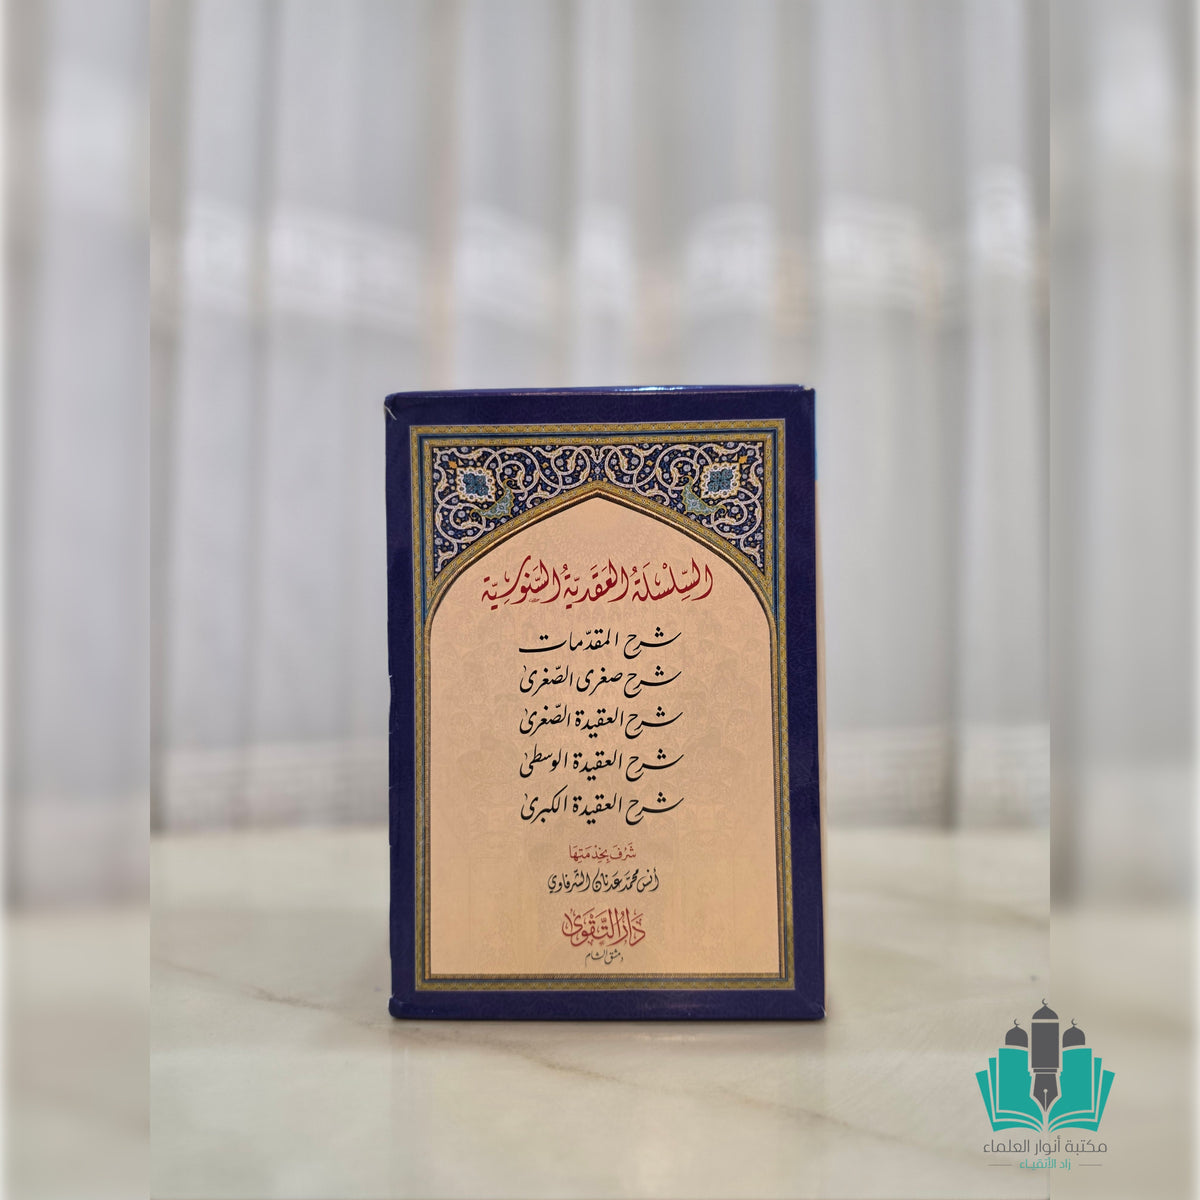 السِّلْسِلَةُ العَقَدِيَّةُ السَّنُوسِيَّة
شرح المقدّمات
شرح صغرى الصّغرى
شرح العقيدة الصّغرى
شرح العقيدة الوسطى
شرح العقيدة الكبرى
شَرُفَ بِخِدْمَتِهَا
أنس محمّد عدنان الشّرفاوي
دَارُ التَّقْوَى
دمشق الشام
مكتبة أنوار العلماء
زاد الأتقياء